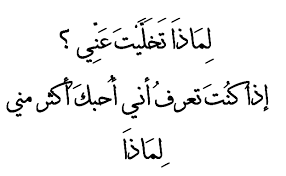 لِمَاذَا تَخَلَّيْتَ عَنِّي ؟
إذا كنُتَ تعرفُ أني أُحبكَ أكثر مني
لِمَاذَا